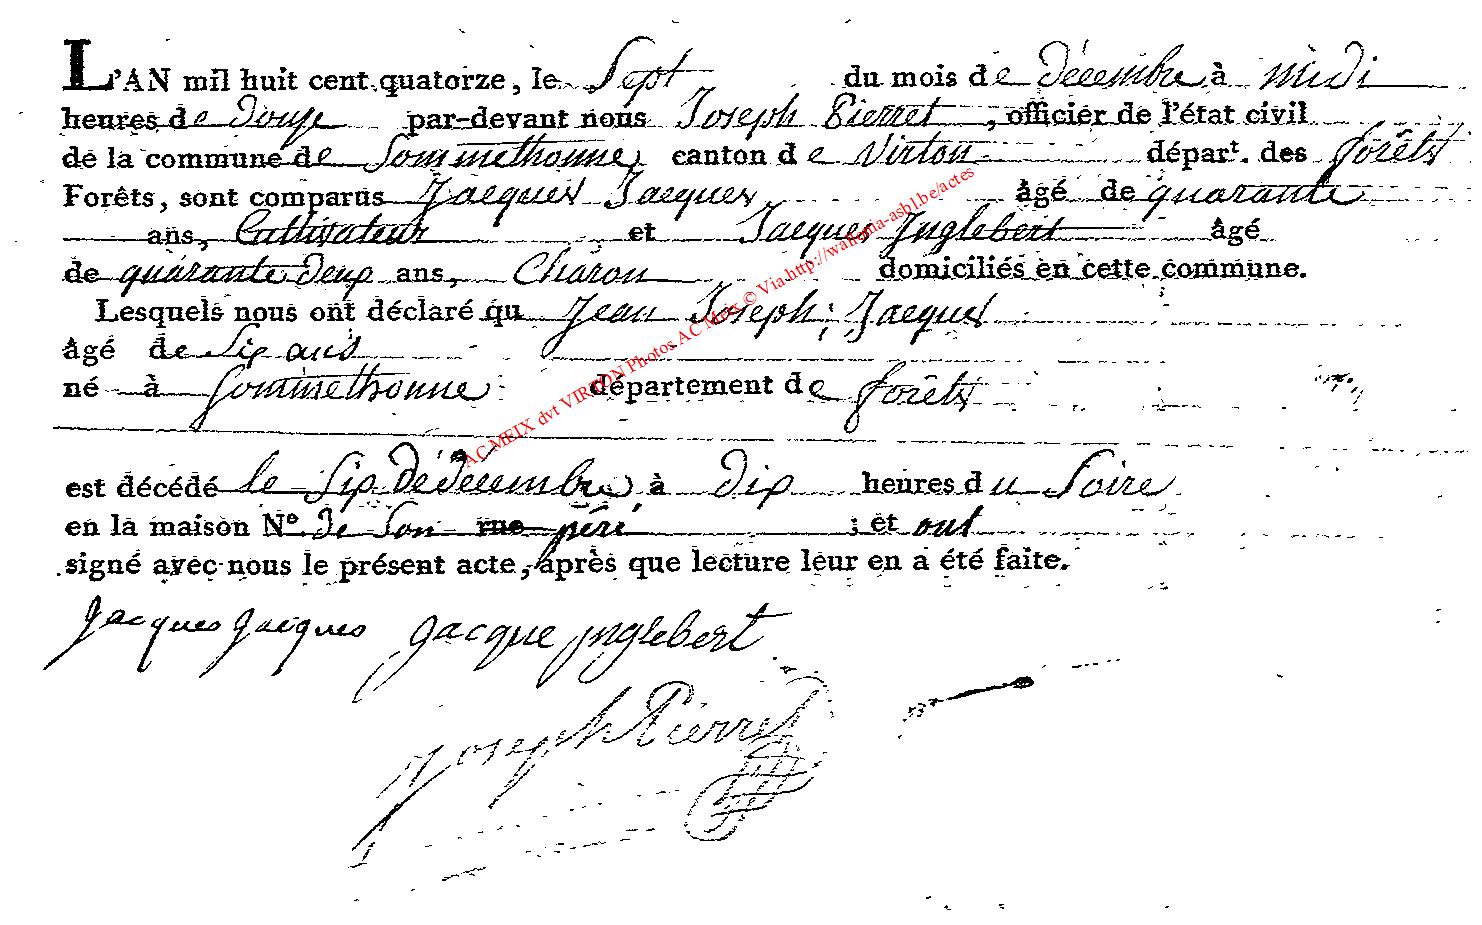 L'AN mil huit cent quatorze, le Sept du mois de décembre à midi
heures de douze par-devant nous Joseph Pierret, officier de l'état civil
de la commune de Sommethonne canton de Virton départ. des forêts
Forêts, sont comparus Jacques Jacques âgé de quarante
ans, Cultivateur et Jacques Inglebert âgé
de quarante deux ans, Charon domiciliés en cette commune.
Lesquels nous ont déclaré qu Jean Joseph Jacques
âgé de Six ans
né à Sommethonne département de forêts
est décédé le Six de decembre à dix heures du Soire
en la maison N° de Son rue péré ; et ont
signé avec nous le présent acte, après que lecture leur en a été faite.
jacques jacques jacque jnglebert
Joseph Pierret
AC MEIX dvt VIRTON Photos AC Meix © Via http://wallonia-asbl.be/actes